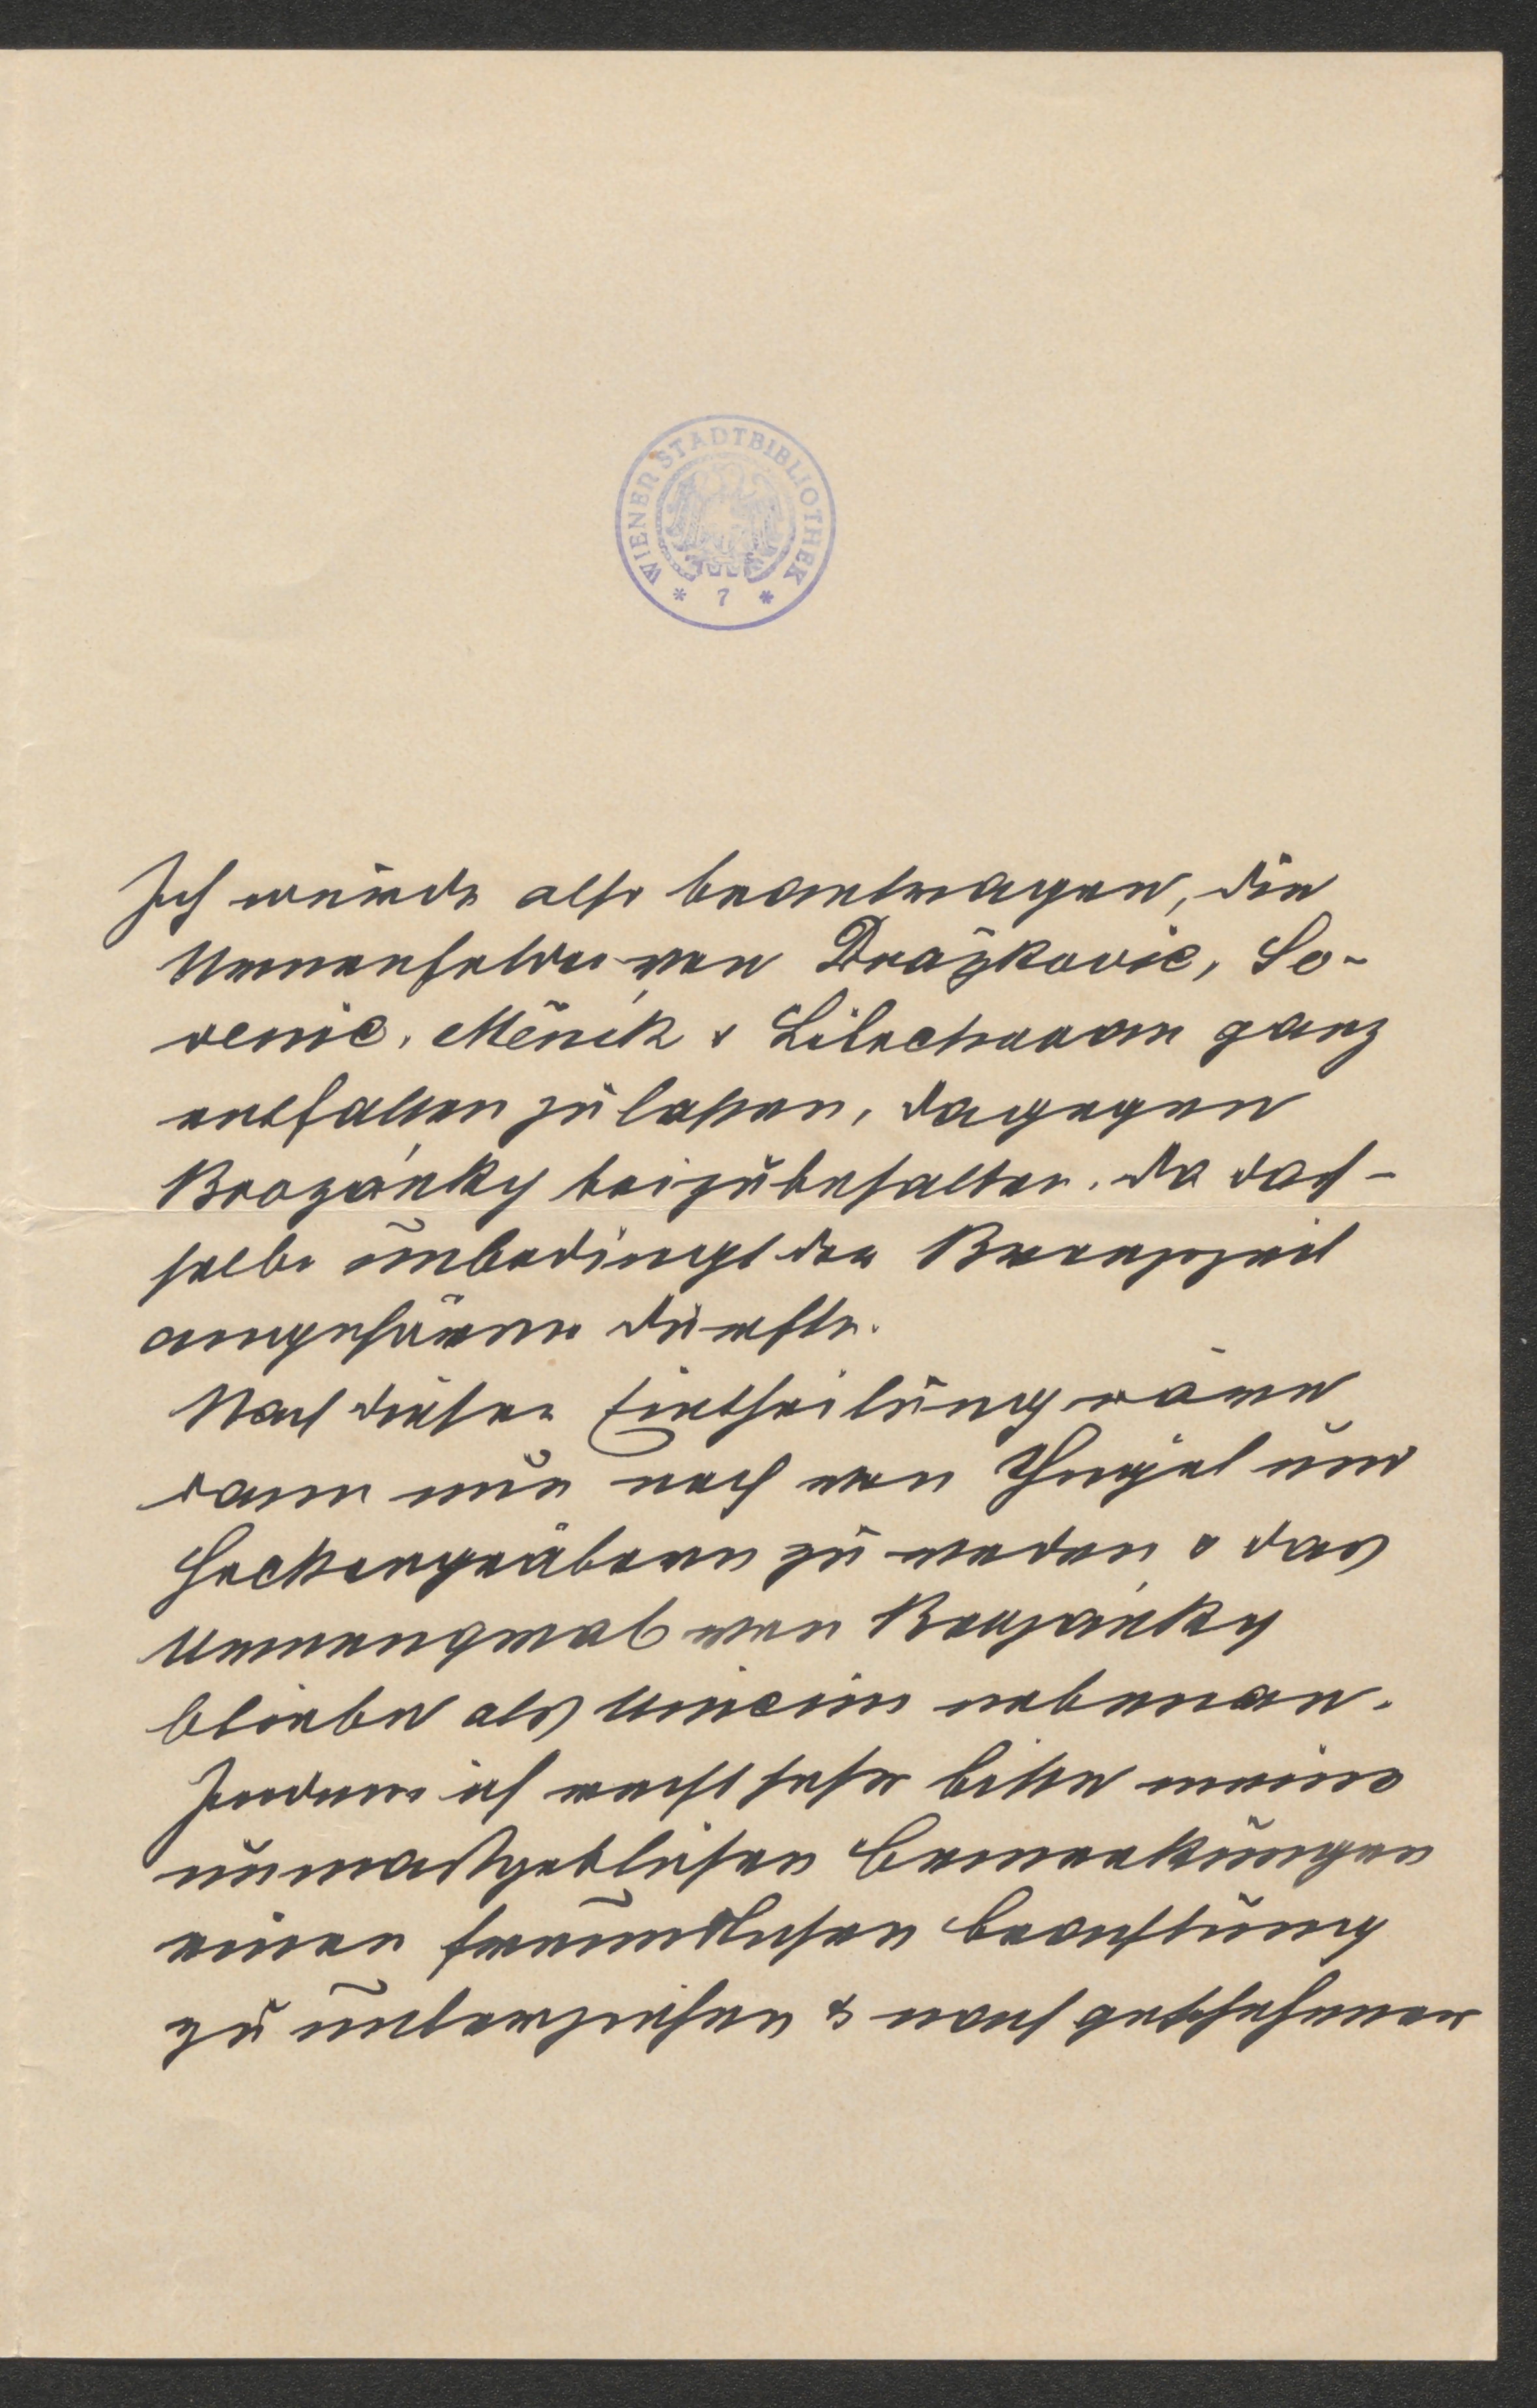 WIENER STADTBIBLIOTHEK
* 7 *
Ich würde also beantragen, die
Urnenfelder von Dražkovic, So-
venic, Měník & Libochowan ganz
entfallen zu lassen, dagegen
Brozánky beizubehalten, da das-
selbe unbedingt der Bronzezeit
angehören dürfte.
Nach dieser Eintheilung wäre
dann nur noch von Hügel und
Hockergräbern zu reden & das
Urnengrab von Brozánky
bliebe als Unicum nebenan.
Indem ich recht sehr bitte meine
unmaßgeblichen Bemerkungen
einer freundlichen Beachtung
zu unterziehen & nach geschehener